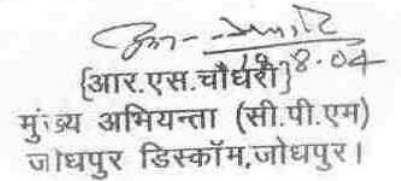 18.8.04
{आर.एस.चौधरी}
मुख्य अभियन्ता (सी.पी.एम)
जोधपुर डिस्कॉम,जोधपुर।